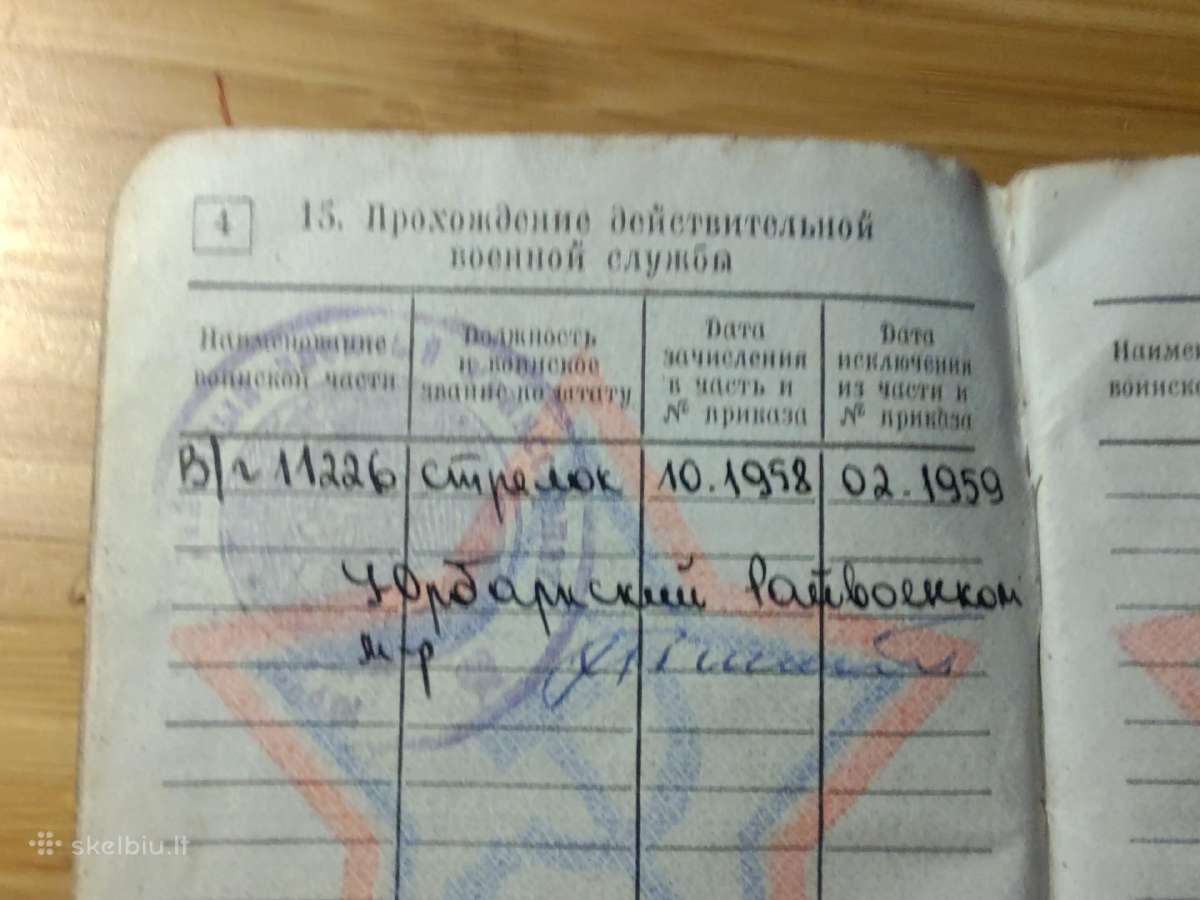 4
15. Прохождение действительной
военной службы
Наименование
воинской части
Должность
и воинское
звание по штату
Дата
зачисления
в часть и
№ приказа
Дата
исключения
из части и
№ приказа
В/ч 11226 стрелок 10.1958 02.1959
Юрбаркский Райвоенком
м-р
Наимен
воинско
skelbiu.lt